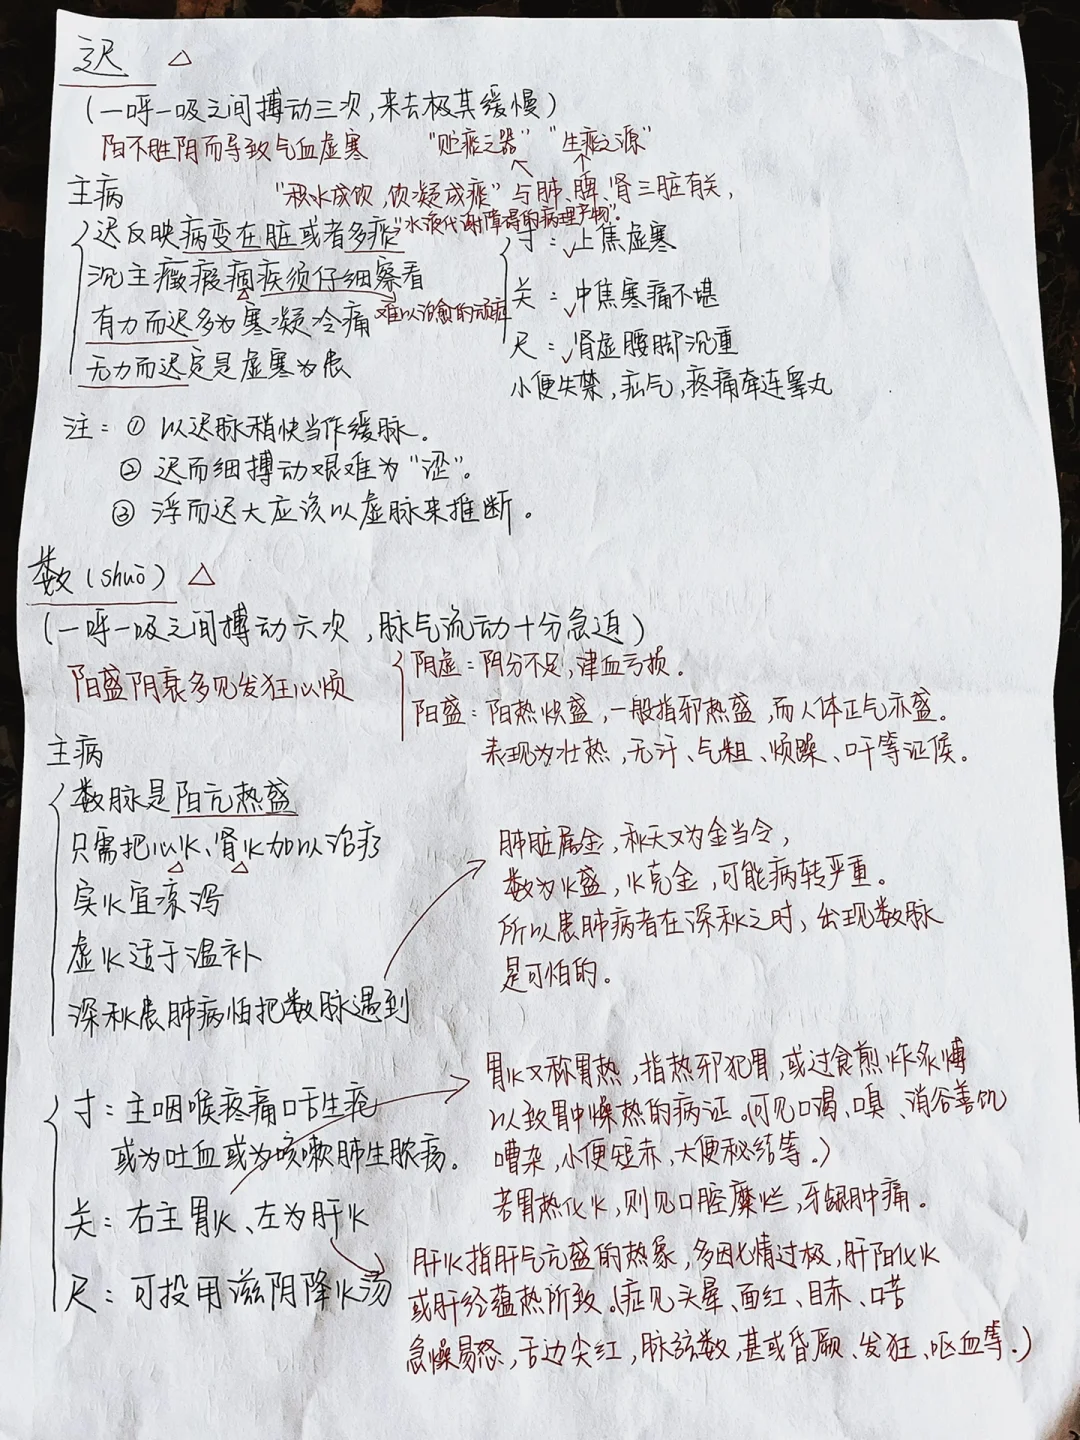 迟 △
(一呼一吸之间搏动三次,来去极其缓慢)
阳不胜阴而导致气血虚寒
"贮痰之器" "生痰之源"
主病
"积水成饮,饮凝成痰"与肺、脾、肾三脏有关,
"水液代谢障碍的病理产物"。
迟反映病变在脏或者多痰
沉主癥瘕痼疾须仔细察看
难以治愈的顽症
有力而迟多为寒凝冷痛
无力而迟定是虚寒为患
寸:上焦虚寒
关:中焦寒痛不堪
尺:肾虚腰脚沉重
小便失禁,疝气,疼痛牵连睾丸
注:① 以迟脉稍快当作缓脉。
② 迟而细搏动艰难为"涩"。
③ 浮而迟大应该以虚脉来推断。
数(shuò) △
(一呼一吸之间搏动六次,脉气流动十分急迫)
阳盛阴衰多见发狂心烦
阴虚:阴分不足,津血亏损。
阳盛:阳热炽盛,一般指邪热盛,而人体正气亦盛。
表现为壮热,无汗、气粗、烦躁、口干等证候。
主病
数脉是阳亢热盛
只需把心火、肾火加以治疗
实火宜凉泻
虚火适于温补
深秋患肺病怕把数脉遇到
肺脏属金,秋天又为金当令,
数为火盛,火克金,可能病转严重。
所以患肺病者在深秋之时,出现数脉
是可怕的。
寸:主咽喉疼痛口舌生疮
或为吐血或为咳嗽肺生脓疡。
关:右主胃火、左为肝火
尺:可投用滋阴降火汤
胃火又称胃热,指热邪犯胃,或过食煎炸炙煿
以致胃中燥热的病证。(可见口渴、口臭、消谷善饥
嘈杂,小便短赤,大便秘结等。)
若胃热化火,则见口腔糜烂,牙龈肿痛。
肝火指肝气亢盛的热象,多因七情过极,肝阳化火
或肝经蕴热所致。(症见头晕、面红、目赤、口苦
急燥易怒,舌边尖红,脉弦数,甚或昏厥、发狂、呕血等。)